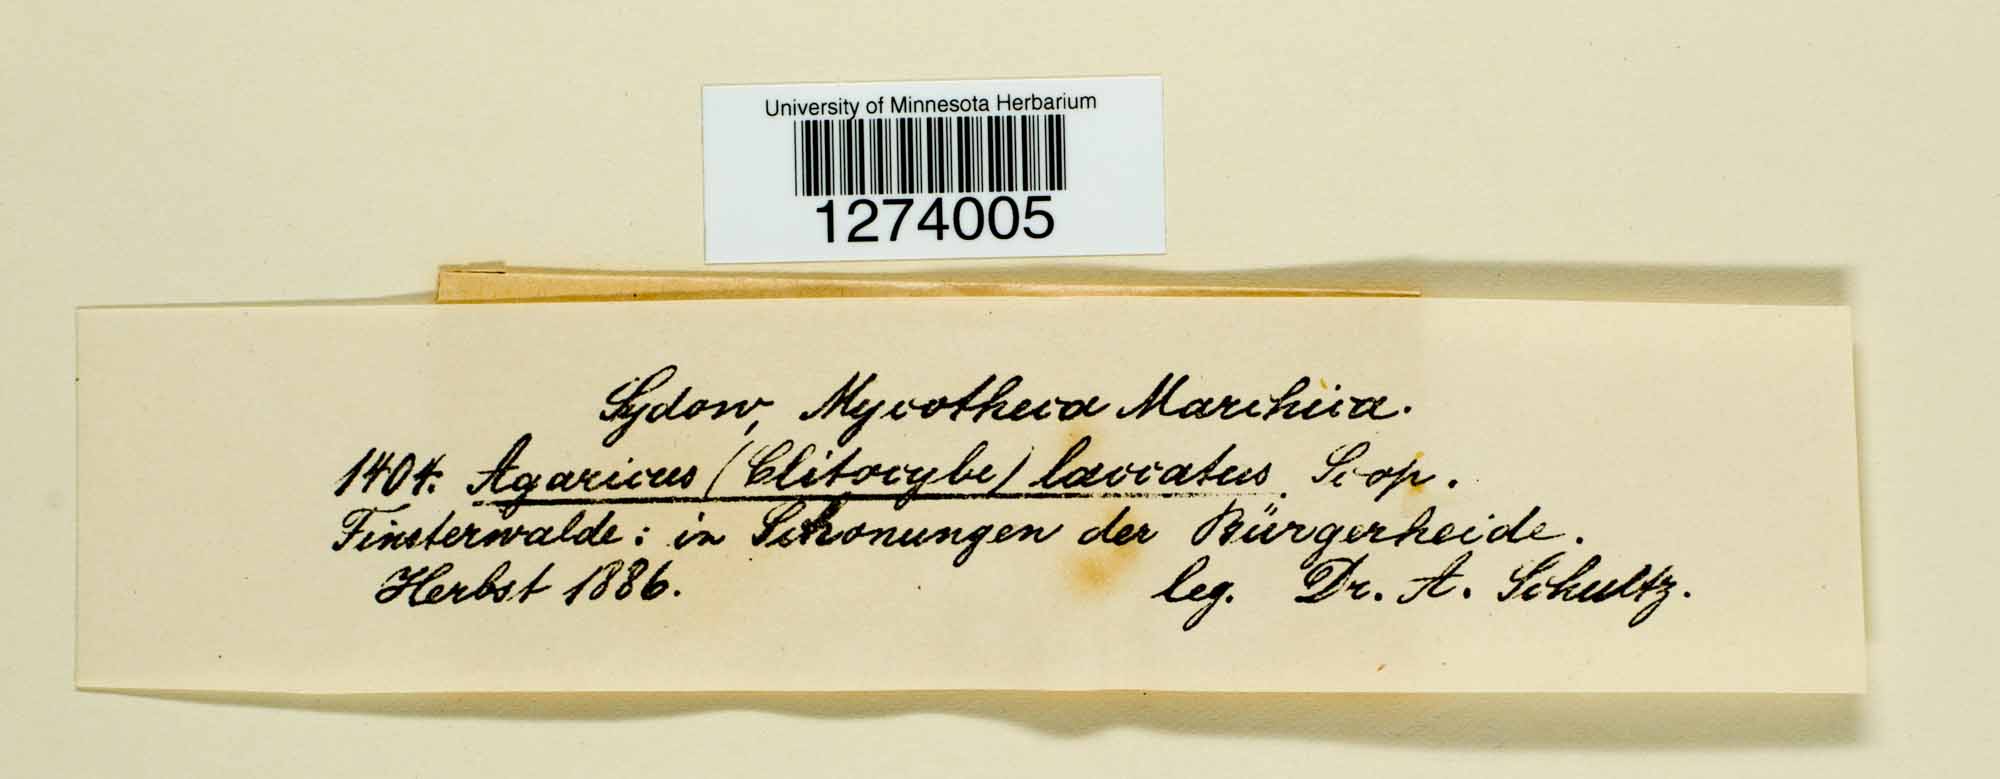 University of Minnesota Herbarium
1274005
Sydow, Mycotheca Marchica.
1404. Agaricus (Clitocybe) laccatus Scop.
Finsterwalde: in Schonungen der Bürgerheide.
Herbst 1886. leg. Dr. A. Schultz.